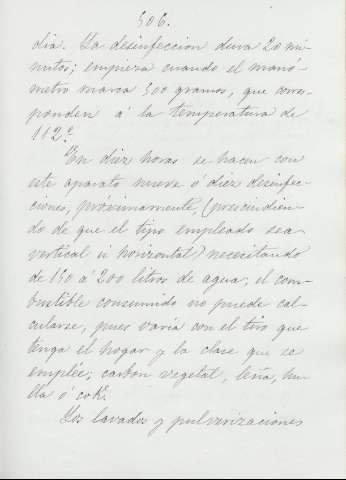 506.
dia. La desinfeccion dura 20 mi-
nutos; empieza cuando el manó-
metro marca 500 gramos, que corres-
ponden á la temperatura de
112º.
En diez horas se hacen con
este aparato nueve ó diez desinfec-
ciones, próximamente, (prescindien-
do de que el tipo empleado sea
vertical ú horizontal) necesitando
de 150 á 200 litros de agua; el com-
bustible consumido no puede cal-
cularse, pues varía con el tiro que
tenga el hogar y la clase que se
emplée; carbon vegetal, leña, hu-
lla ó cok.
Los lavados y pulverizaciones